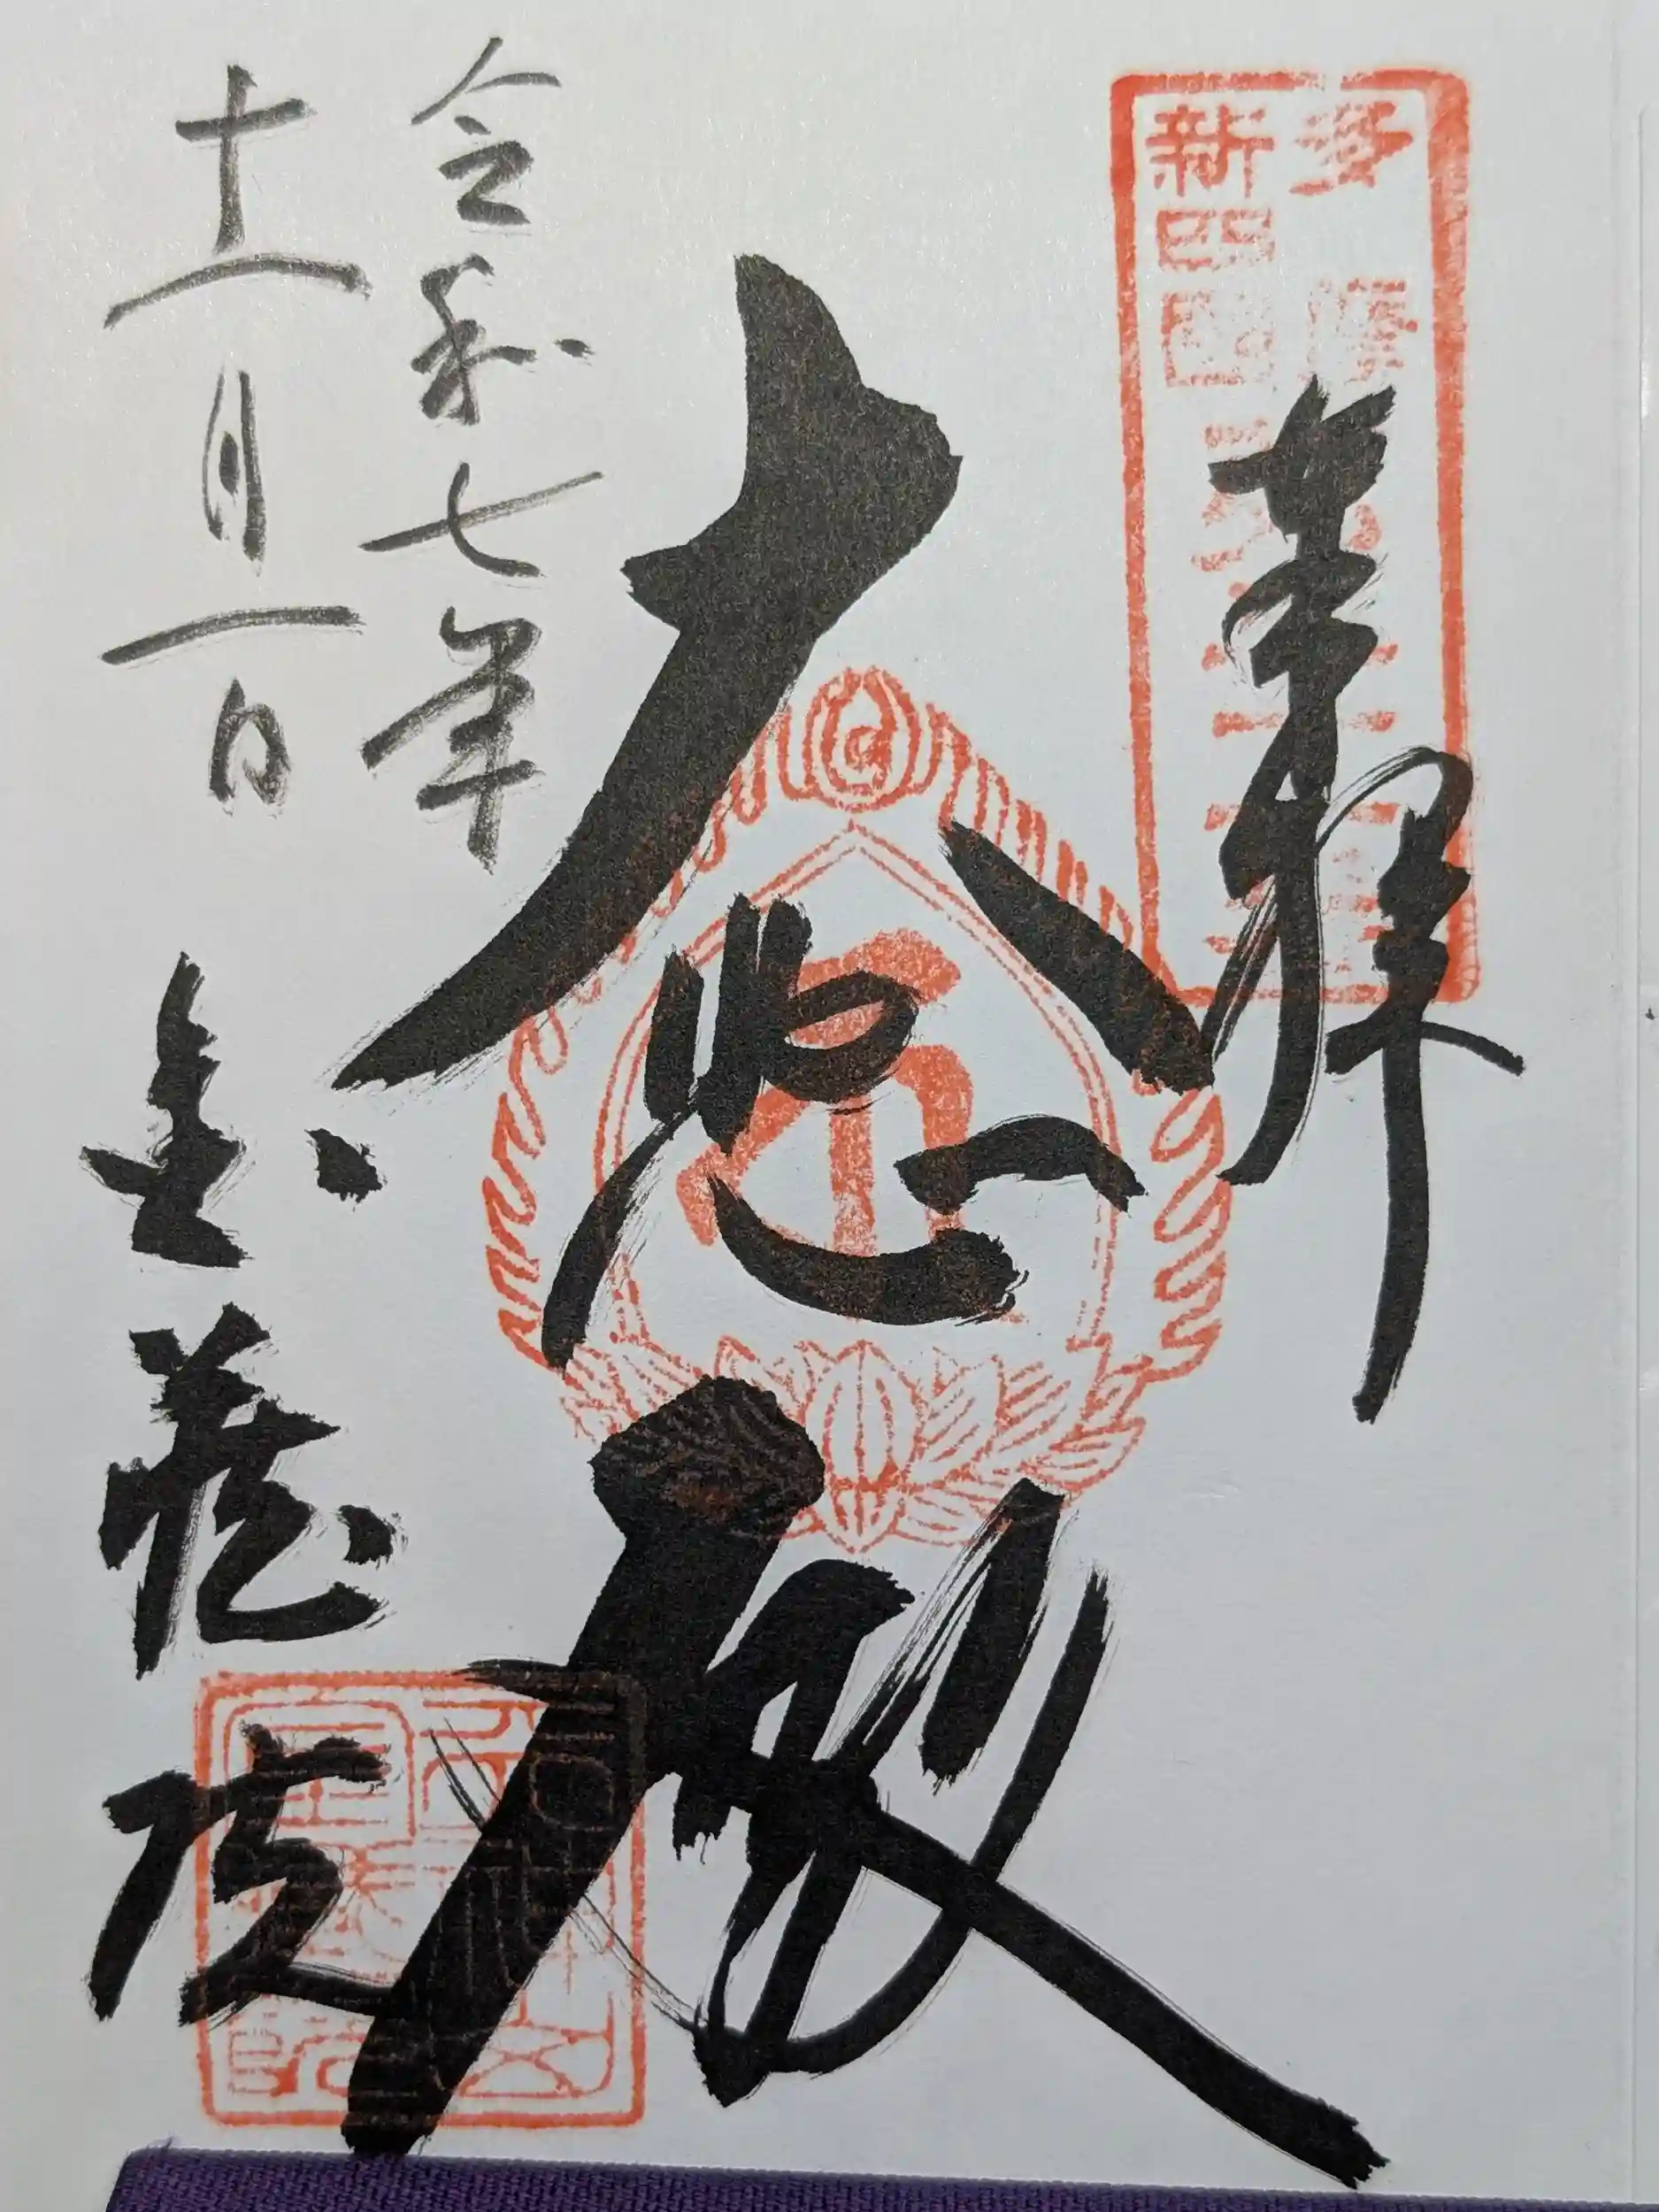 多摩
新四国
奉拝
大悲殿
令和七年
十一月一日
金蔵院